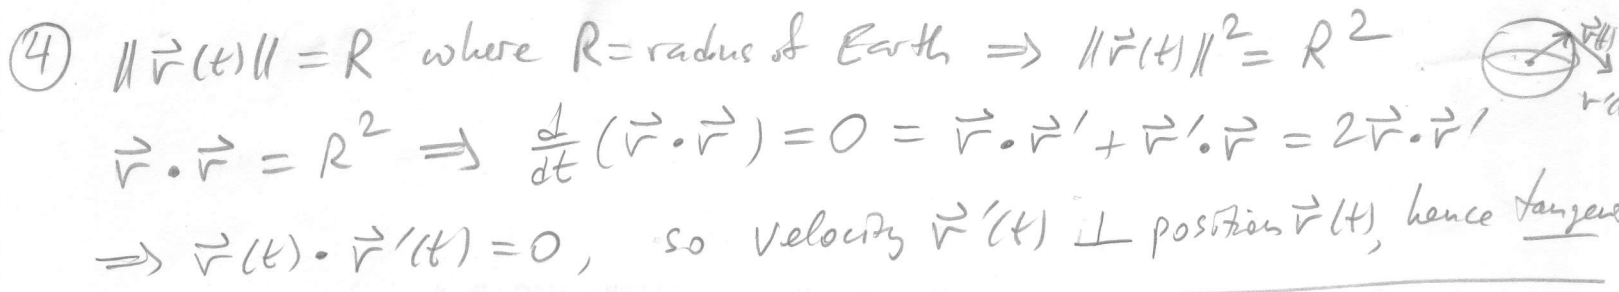 ④ ||r⃗(t)|| = R where R = radius of Earth ⇒ ||r⃗(t)||² = R². r⃗(t)
r⃗ • r⃗ = R² ⇒ d/dt (r⃗ • r⃗) = 0 = r⃗ • r⃗′ + r⃗′ • r⃗ = 2r⃗ • r⃗′
⇒ r⃗(t) • r⃗′(t) = 0, so velocity r⃗′(t) ⊥ position r⃗(t), hence